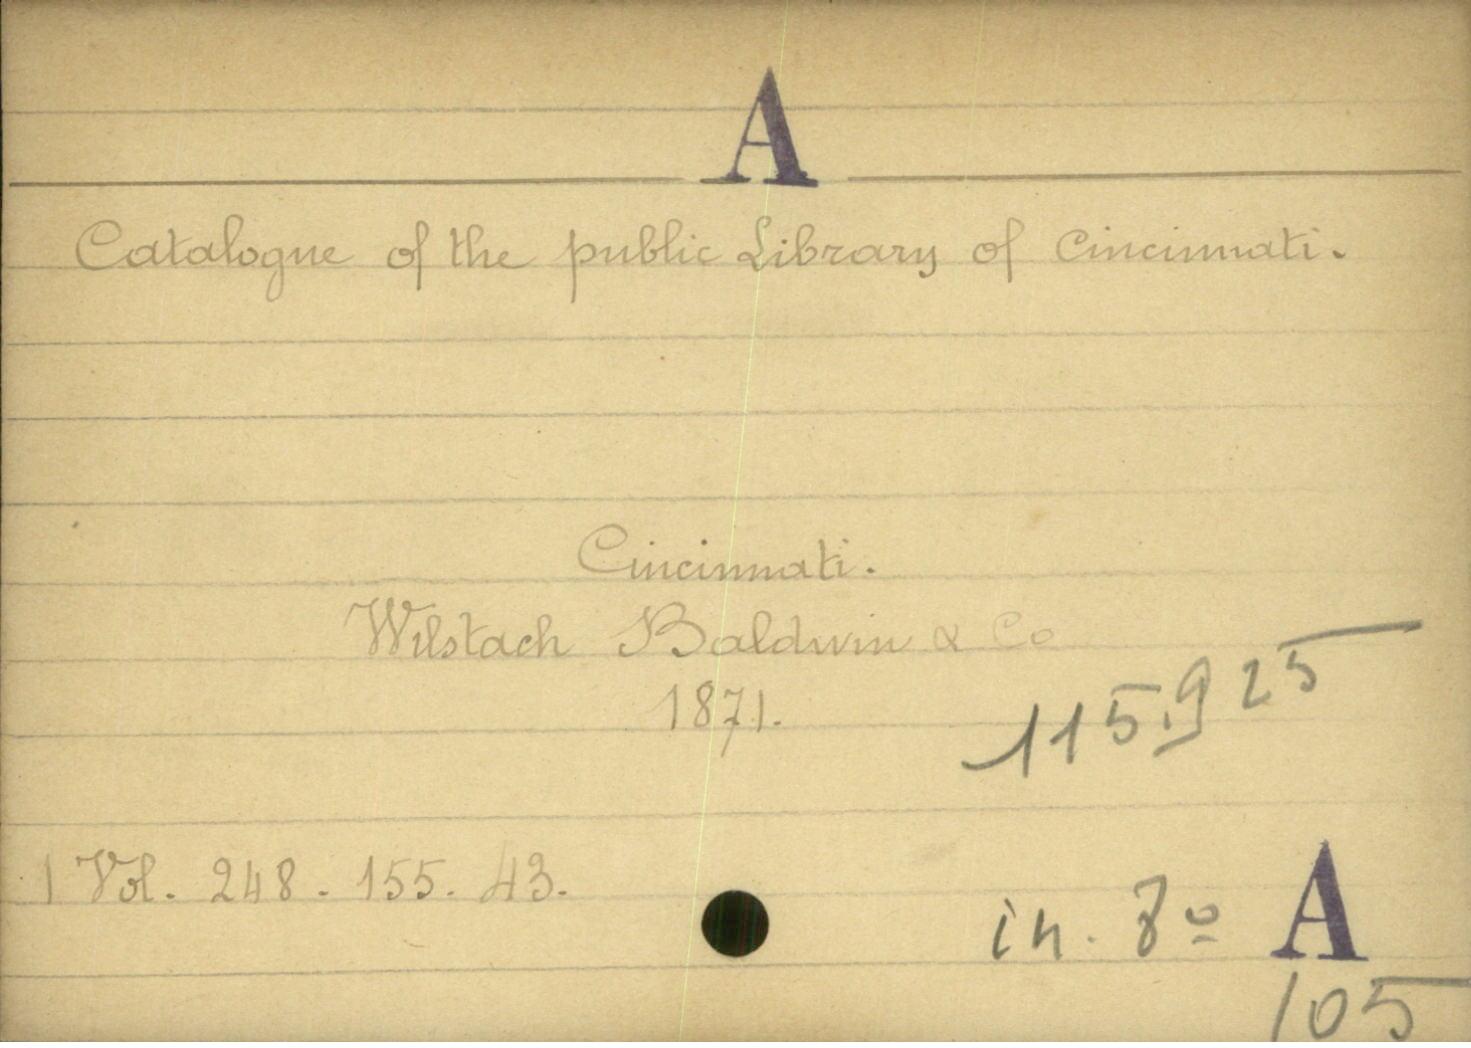 A
Catalogue of the public Library of Cincinnati.
Cincinnati.
Wilstach Baldwin & Co
1871.
115.925
1 Vol. 248. 155. 43.
in. 8º A
105